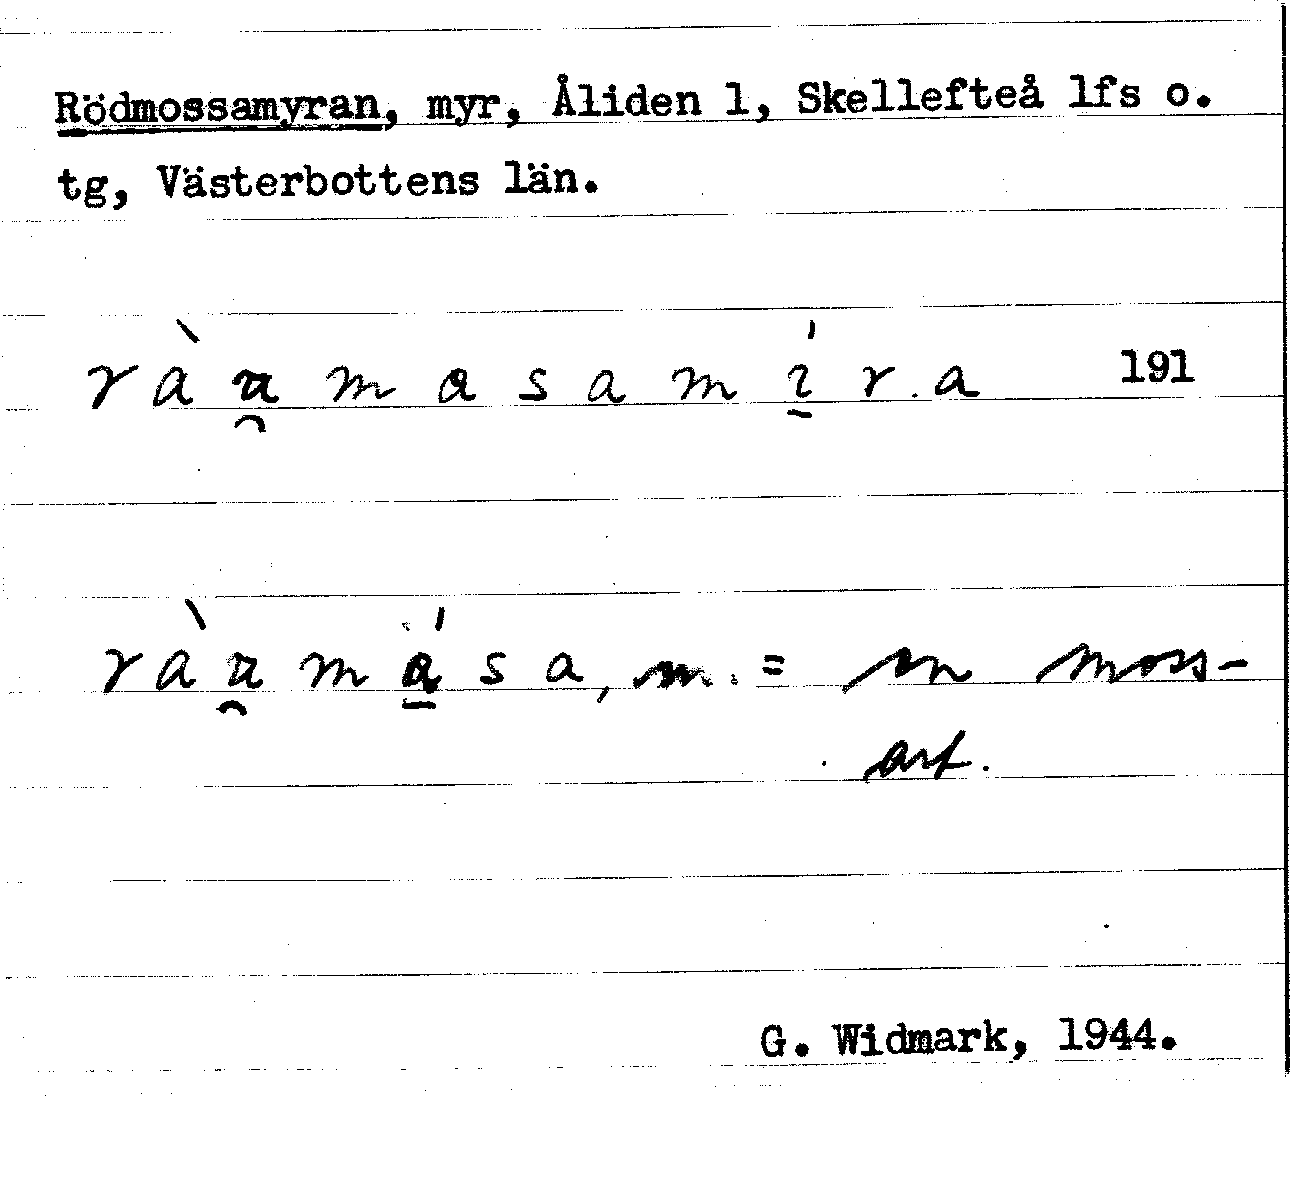 Rödmossamyran, myr, Åliden 1, Skellefteå lfs o.
tg, Västerbottens län.
ràu̯mosamí̱ra 191
ràu̯mǻ̱sa, m. = en moss-
art.
G. Widmark, 1944.